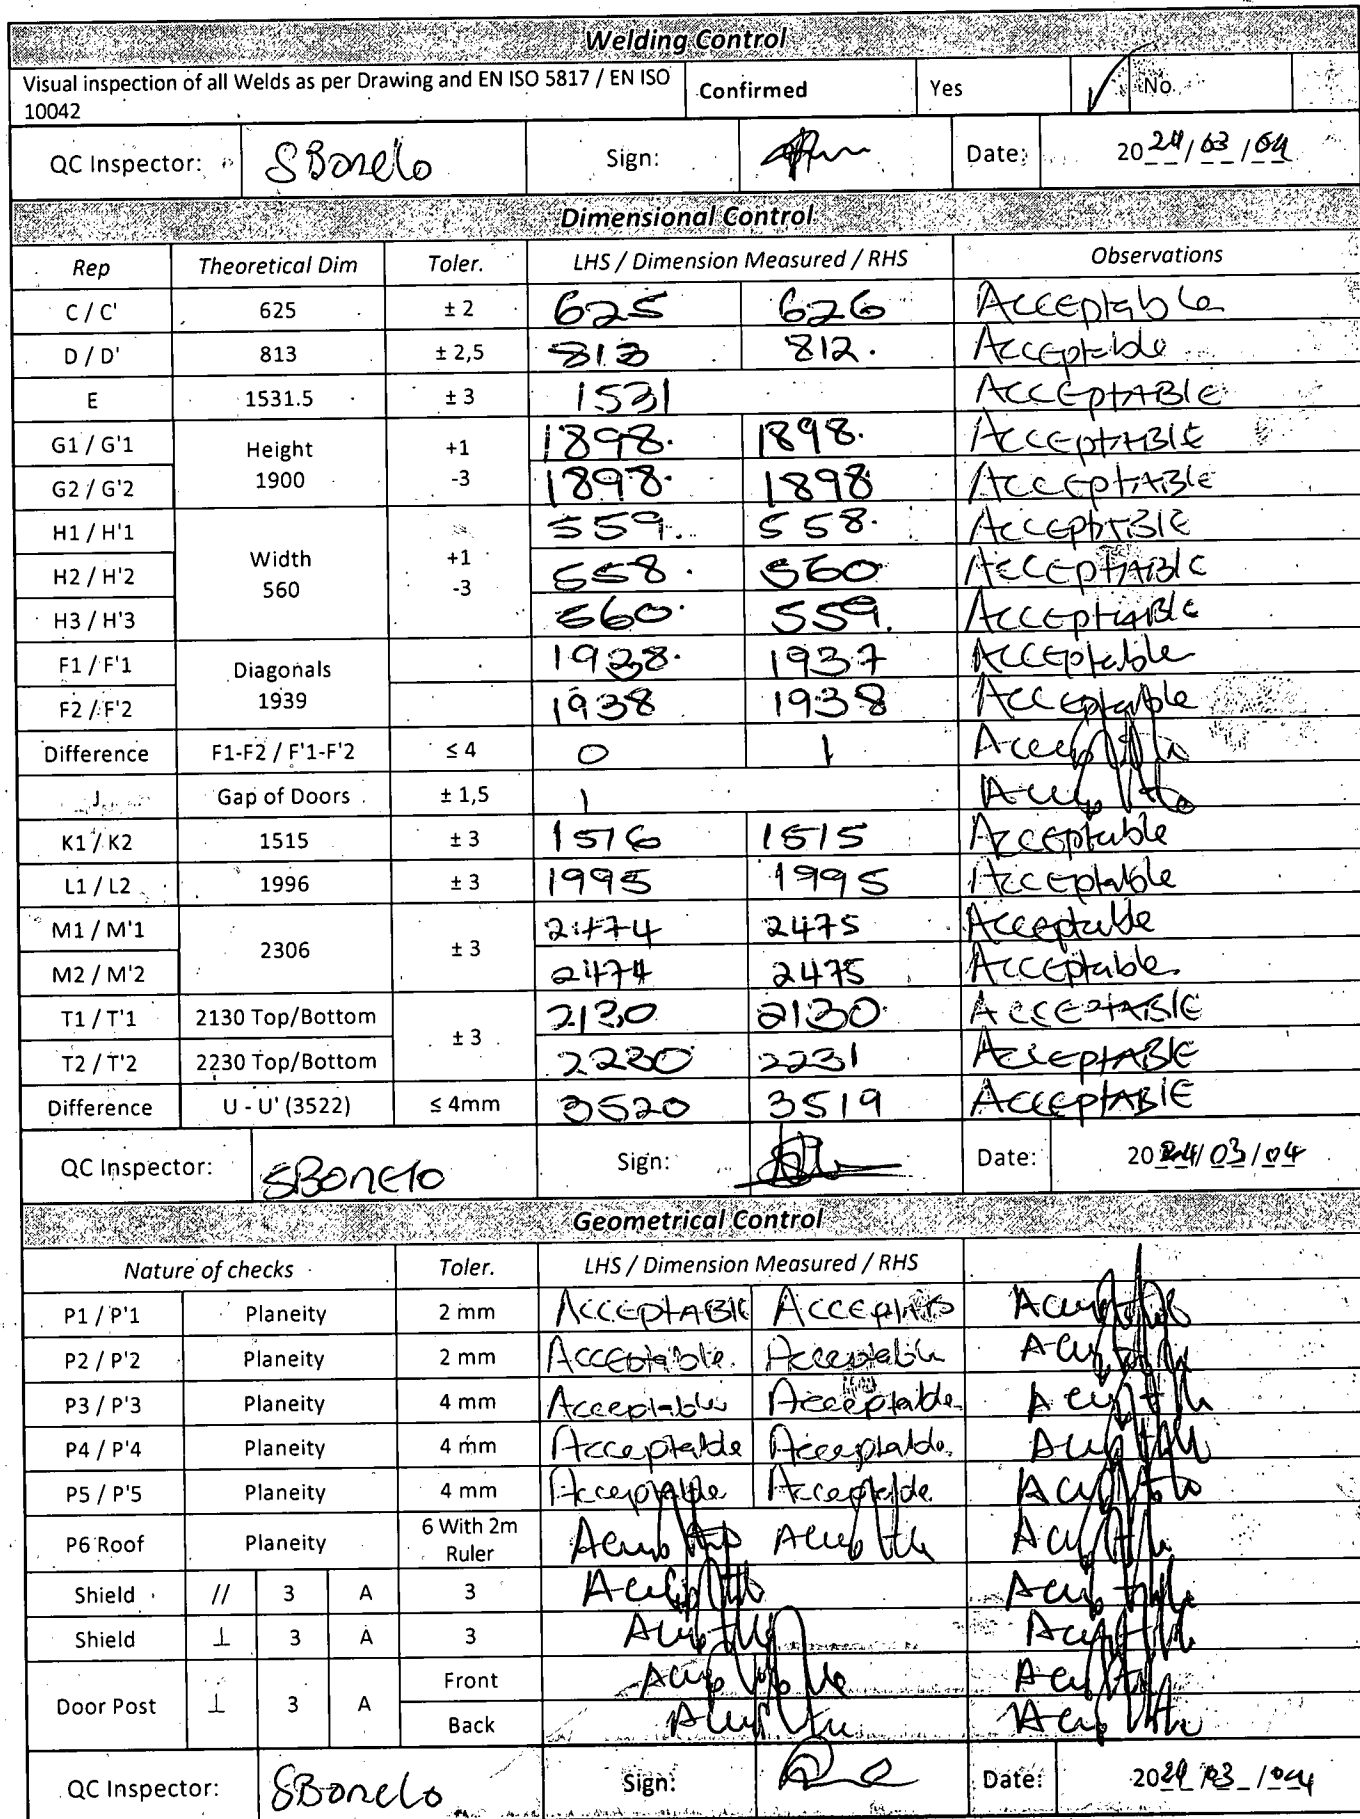 Welding Control
Visual inspection of all Welds as per Drawing and EN ISO 5817 / EN ISO 10042 Confirmed Yes ✓ No
QC Inspector: SBonelo Sign: Date: 2024/03/04
Dimensional Control
Rep Theoretical Dim Toler. LHS / Dimension Measured / RHS Observations
C / C' 625 ± 2 625 626 Acceptable
D / D' 813 ± 2,5 813 812. Acceptable
E 1531.5 ± 3 1531 ACCEptABlE
G1 / G'1 Height 1900 +1 -3 1898. 1898. ACCEptABlE
G2 / G'2 1898. 1898 ACCEptABlE
H1 / H'1 Width 560 +1 -3 559. 558. ACCEptABlE
H2 / H'2 558. 560 ACCEptABlE
H3 / H'3 560. 559. ACCEptABlE
F1 / F'1 Diagonals 1939 1938. 1937 Acceptable
F2 / F'2 1938 1938 Acceptable
Difference F1-F2 / F'1-F'2 ≤ 4 0 1
J Gap of Doors ± 1,5 1
K1 / K2 1515 ± 3 1516 1515 Acceptable
L1 / L2 1996 ± 3 1995 1995 Acceptable
M1 / M'1 2306 ± 3 2474 2475 Acceptable
M2 / M'2 2474 2475 Acceptable
T1 / T'1 2130 Top/Bottom ± 3 2130 2130 ACCEPTABlE
T2 / T'2 2230 Top/Bottom 2230 2231 ACCEptABlE
Difference U - U' (3522) ≤ 4mm 3520 3519 ACCEptABlE
QC Inspector: SBonelo Sign: Date: 2024/03/04
Geometrical Control
Nature of checks Toler. LHS / Dimension Measured / RHS
P1 / P'1 Planeity 2 mm ACCEptABlE
P2 / P'2 Planeity 2 mm Acceptable. Acceptable
P3 / P'3 Planeity 4 mm Acceptable Acceptable
P4 / P'4 Planeity 4 mm Acceptable Acceptable.
P5 / P'5 Planeity 4 mm Acceptable Acceptable
P6 Roof Planeity 6 With 2m Ruler
Shield // 3 A 3
Shield ⊥ 3 A 3
Door Post ⊥ 3 A Front
Back
QC Inspector: SBonelo Sign: Date: 2024/03/04